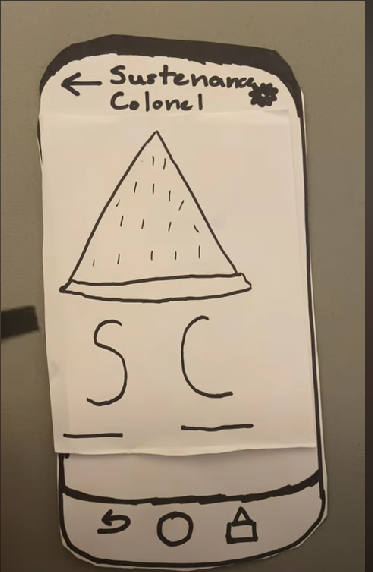 Sustenance
Colonel
S C